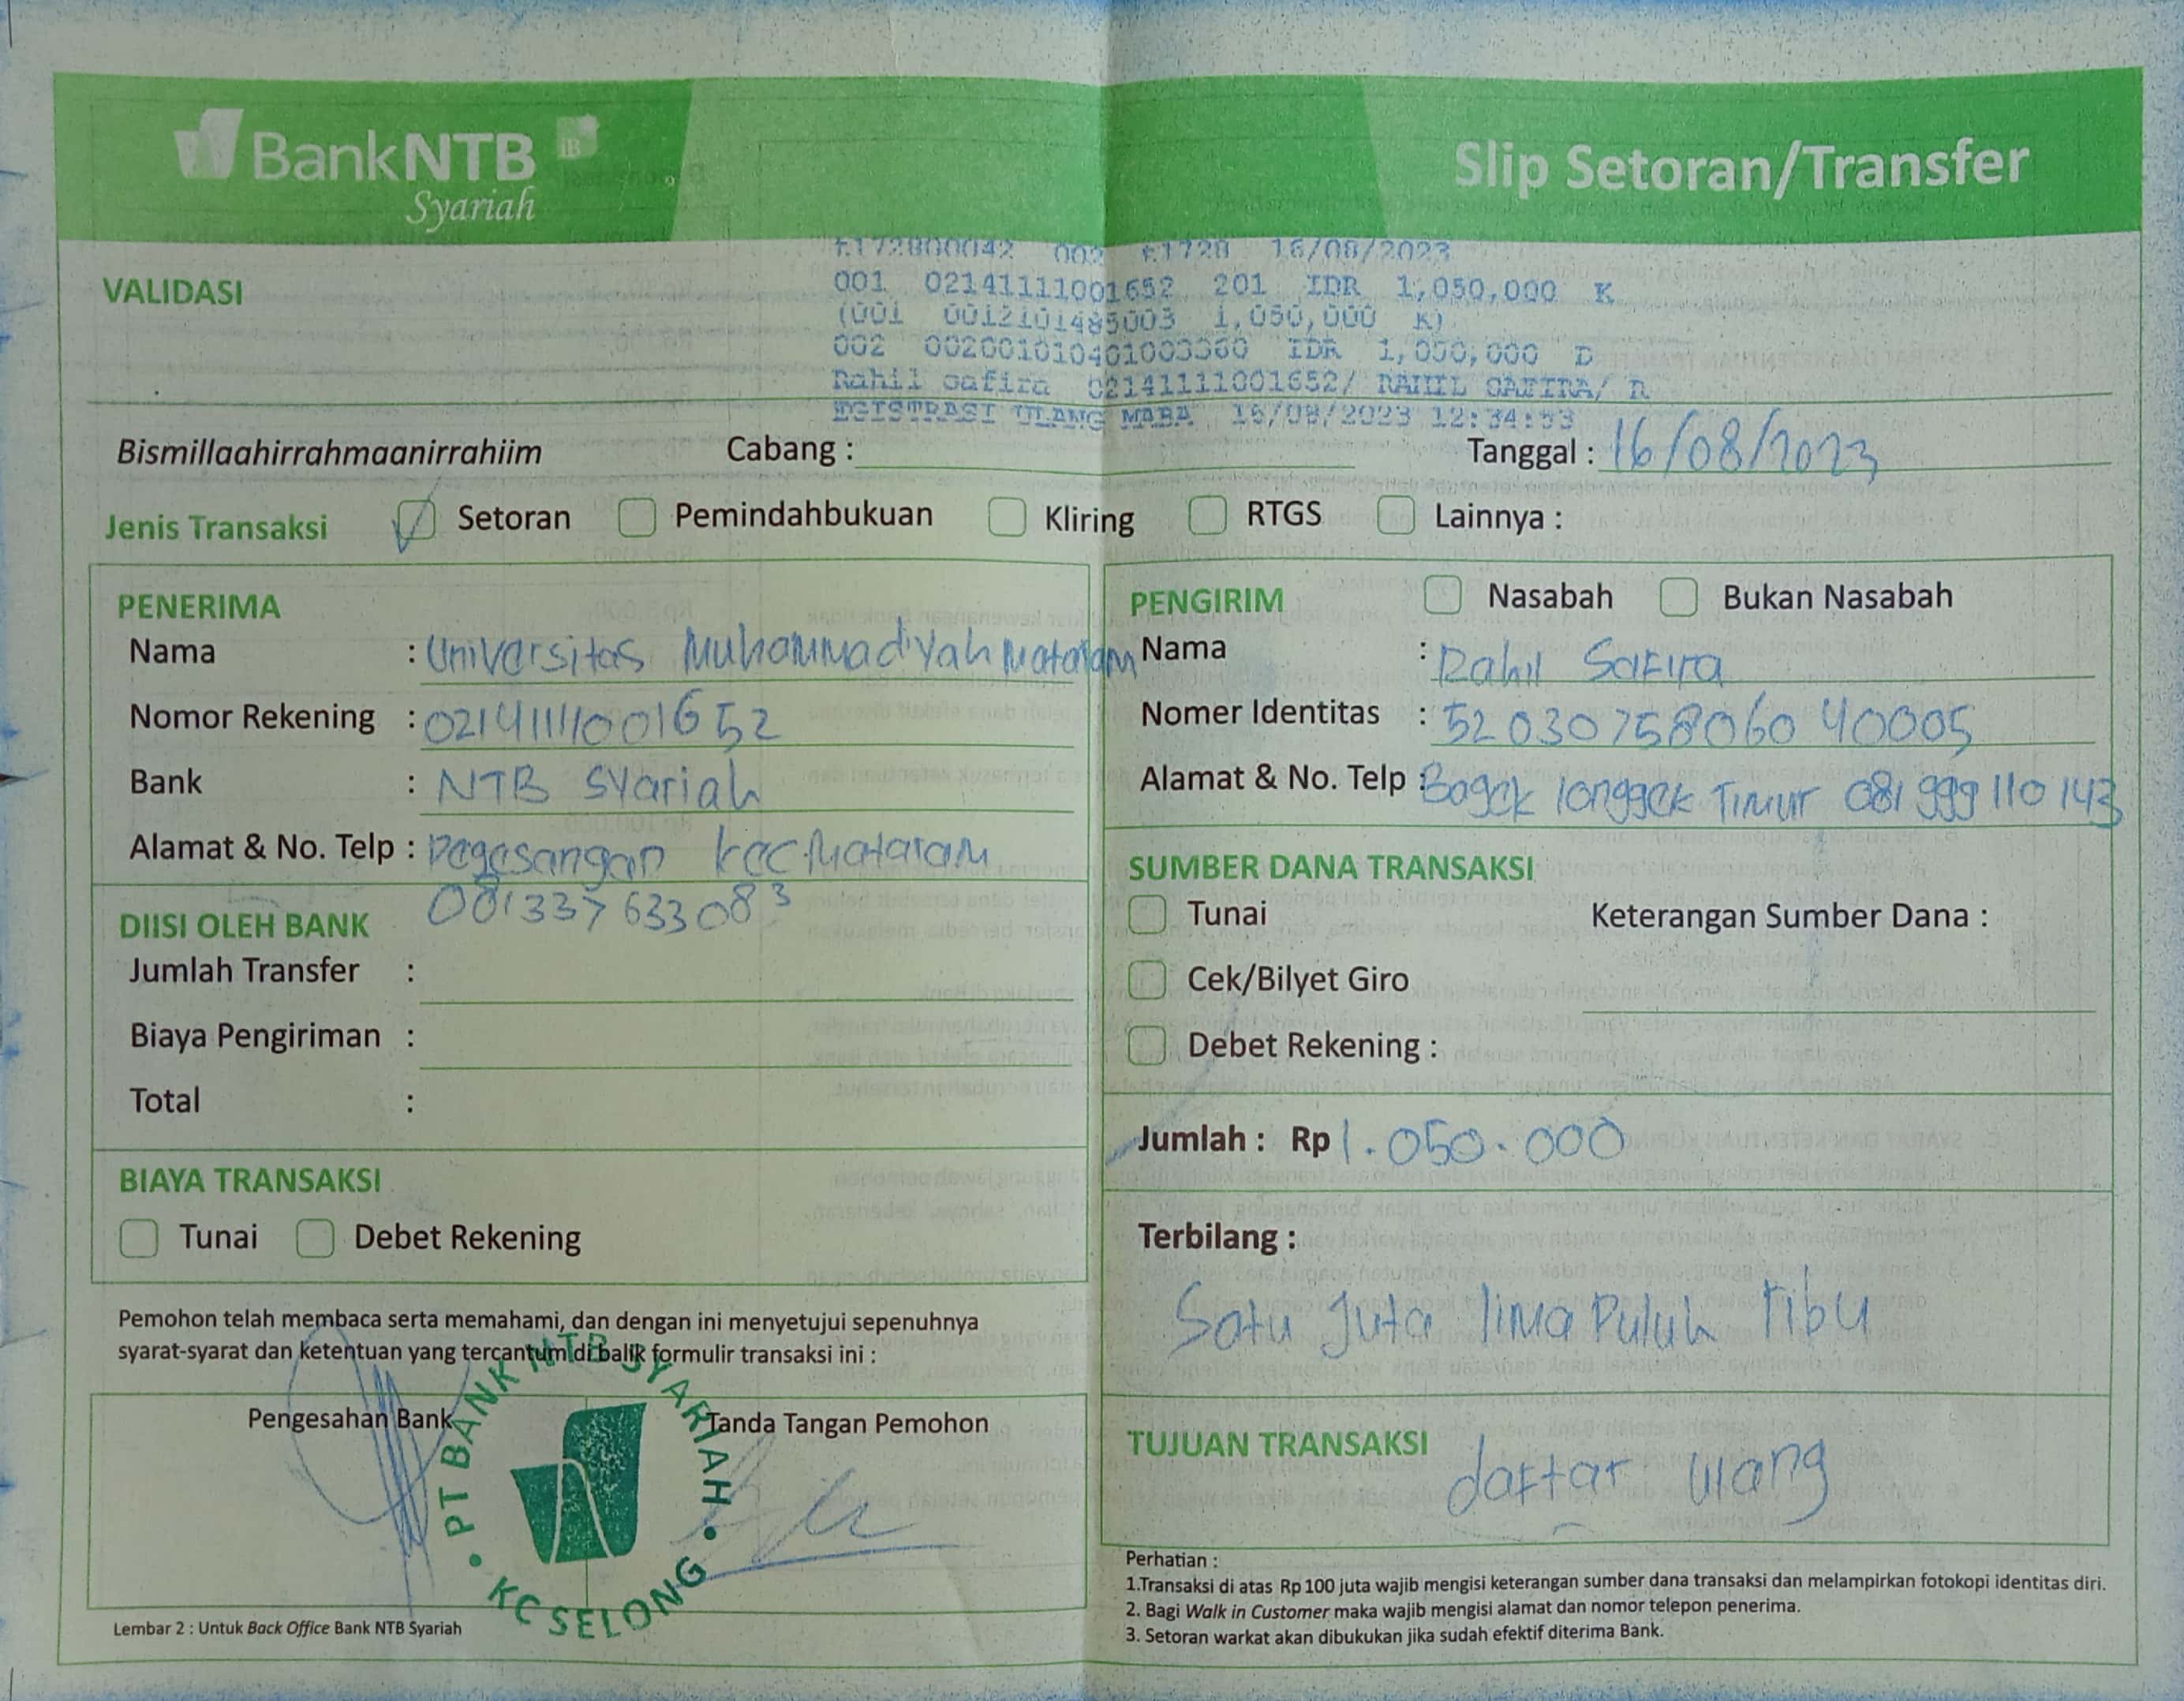 BankNTB iB
Syariah
Slip Setoran/Transfer
VALIDASI
£172800042 002 £1728 16/08/2023
001 02141111001652 201 IDR 1,050,000 K
(001 0012101485003 1,050,000 K)
002 002001010401003360 IDR 1,050,000 D
Rahil safira 02141111001652/ RAHIL SAFIRA/ R
EGISTRASI ULANG MABA 16/08/2023 12:34:53
Bismillaahirrahmaanirrahiim Cabang : Tanggal : 16/08/2023
Jenis Transaksi Setoran Pemindahbukuan Kliring RTGS Lainnya :
PENERIMA
Nama : Universitas Muhammadiyah Mataram
Nomor Rekening : 02141111001652
Bank : NTB Syariah
Alamat & No. Telp : Pagesangan kec.Mataram
081337633083
DIISI OLEH BANK
Jumlah Transfer :
Biaya Pengiriman :
Total :
BIAYA TRANSAKSI
Tunai Debet Rekening
Pemohon telah membaca serta memahami, dan dengan ini menyetujui sepenuhnya
syarat-syarat dan ketentuan yang tercantum di balik formulir transaksi ini :
Pengesahan Bank Tanda Tangan Pemohon
PT BANK NTB SYARIAH
KC SELONG
Lembar 2 : Untuk Back Office Bank NTB Syariah
PENGIRIM Nasabah Bukan Nasabah
Nama : Rahil Safira
Nomer Identitas : 5203075806040005
Alamat & No. Telp : Bagek longgek Timur 081 999 110 143
SUMBER DANA TRANSAKSI
Tunai Keterangan Sumber Dana :
Cek/Bilyet Giro
Debet Rekening :
Jumlah : Rp 1.050.000
Terbilang :
Satu Juta lima Puluh ribu
TUJUAN TRANSAKSI daftar ulang
Perhatian :
1.Transaksi di atas Rp 100 juta wajib mengisi keterangan sumber dana transaksi dan melampirkan fotokopi identitas diri.
2. Bagi Walk in Customer maka wajib mengisi alamat dan nomor telepon penerima.
3. Setoran warkat akan dibukukan jika sudah efektif diterima Bank.